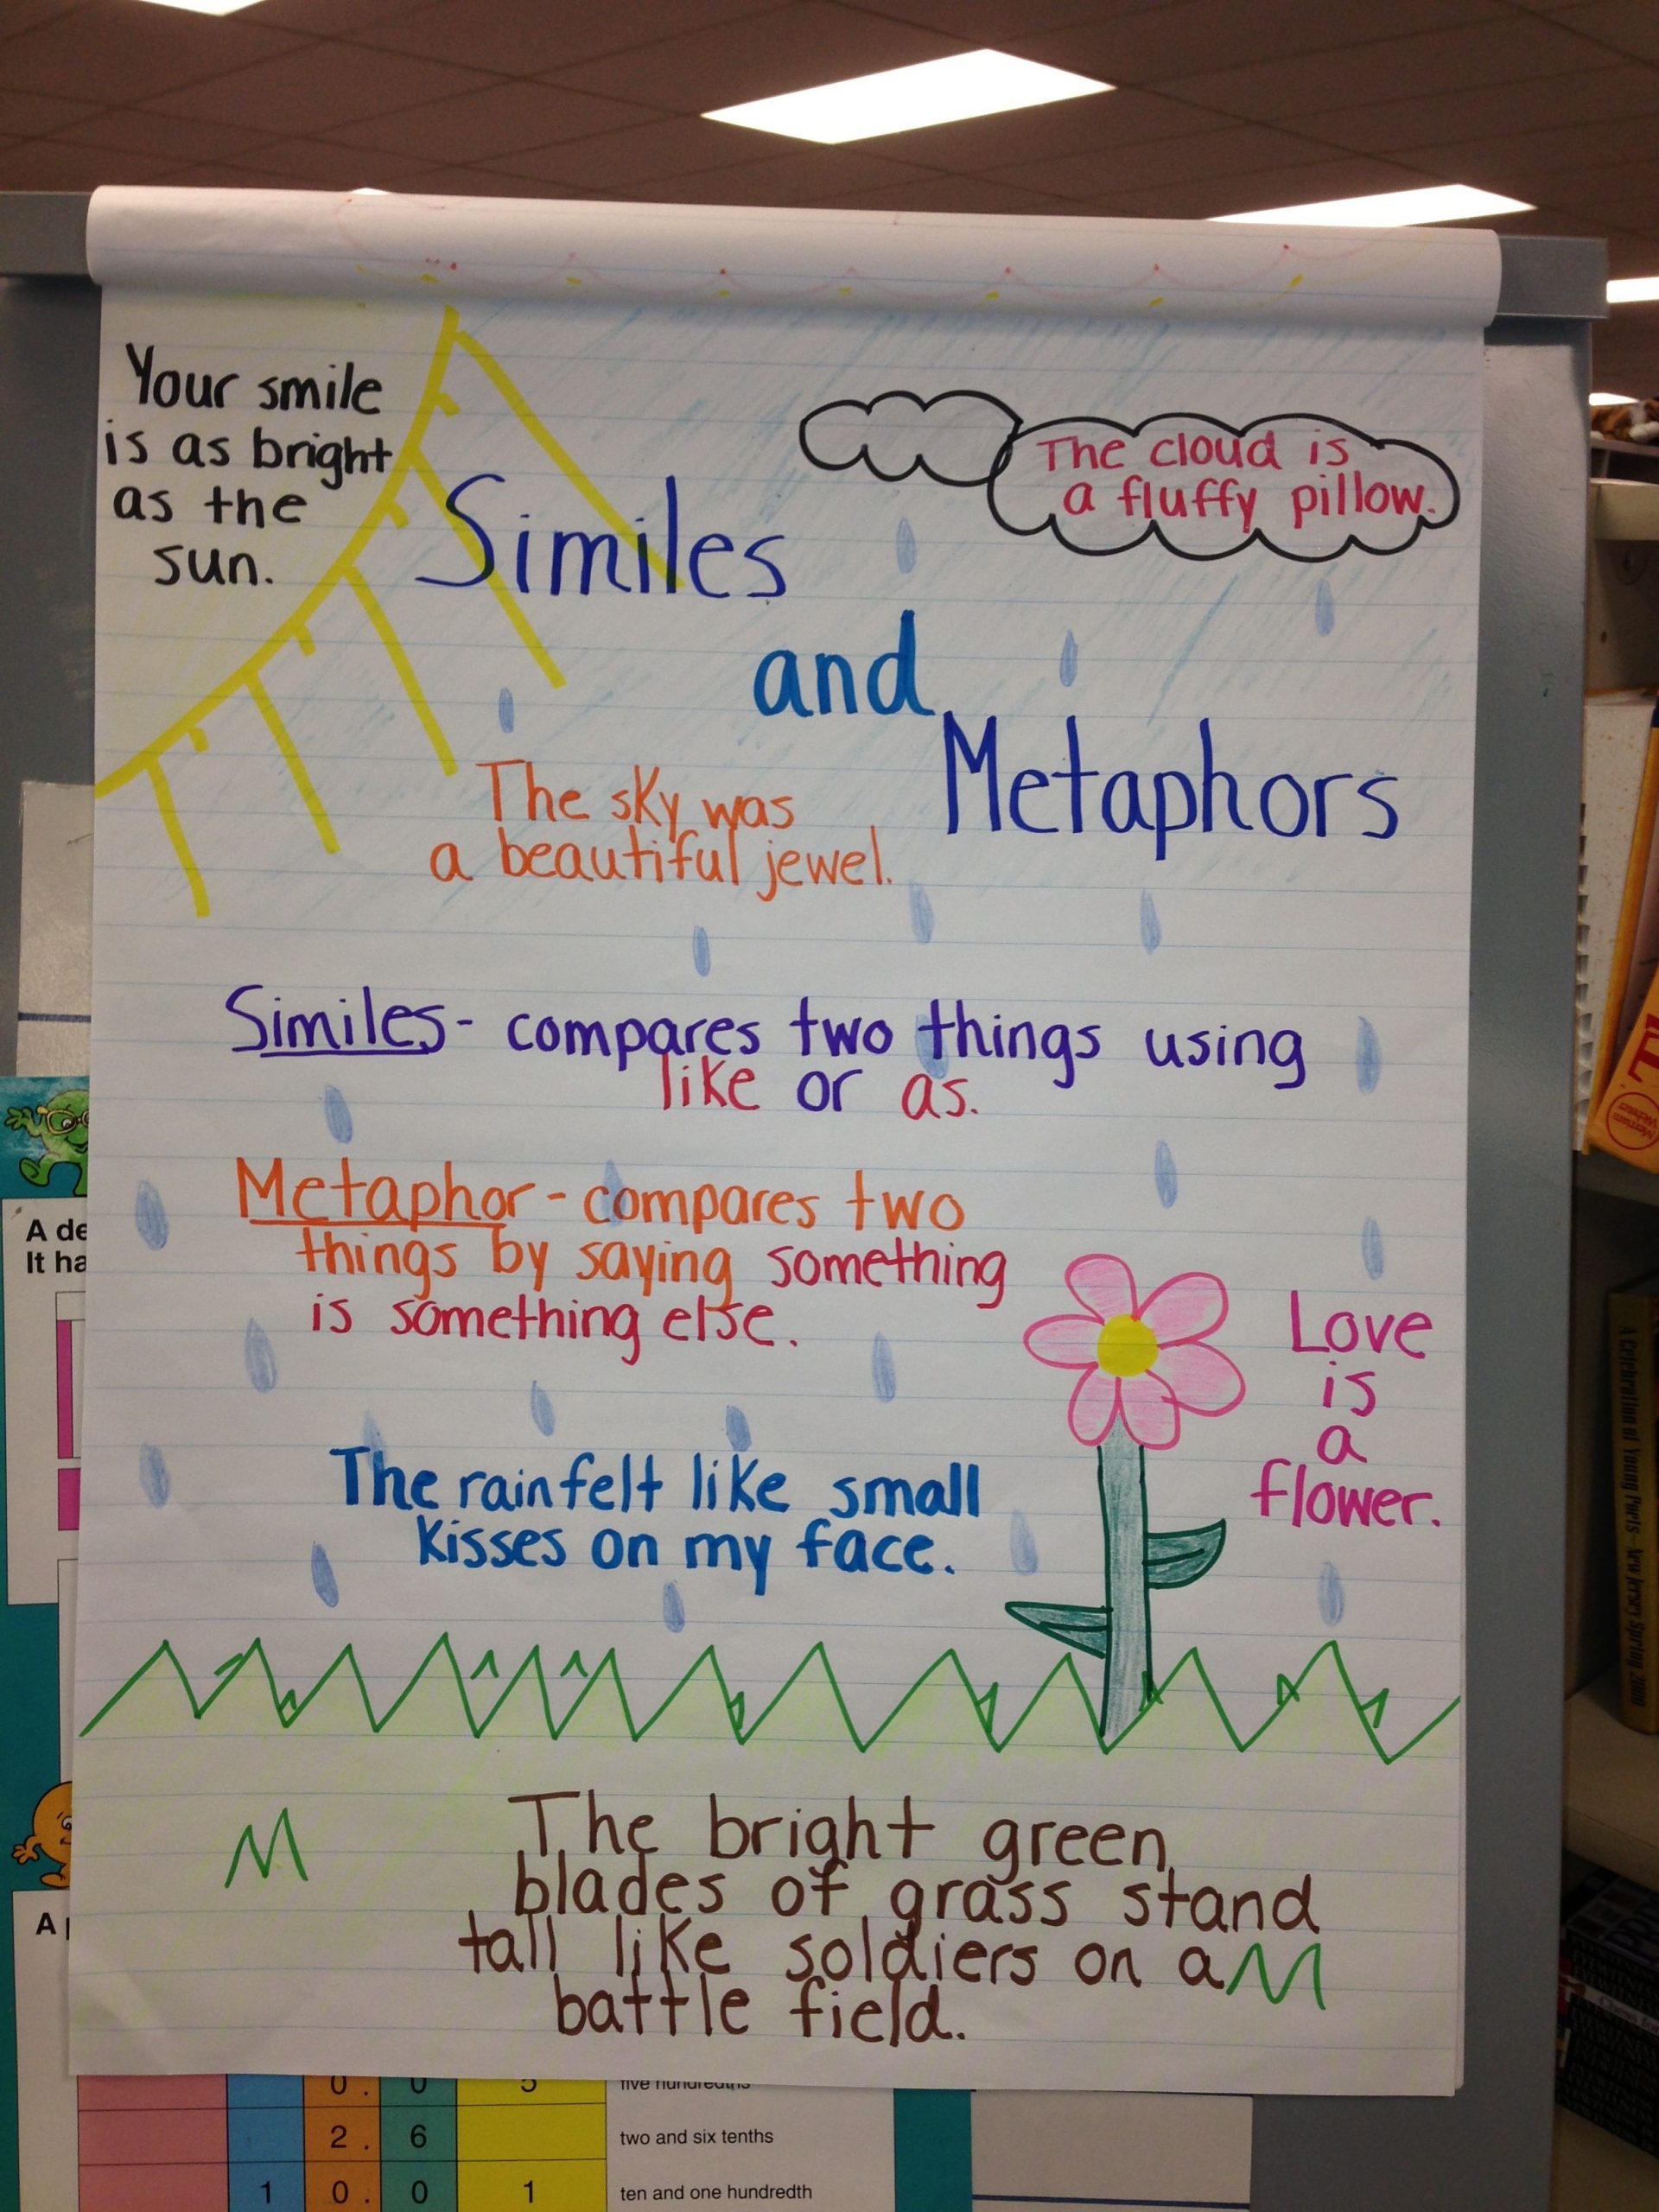 Your smile
is as bright
as the
sun.
The cloud is
a fluffy pillow.
Similes
and
Metaphors
The sky was
a beautiful jewel.
Similes- compares two things using
like or as.
Metaphor - compares two
things by saying something
is something else.
Love
is
a
flower.
The rain felt like small
kisses on my face.
The bright green
blades of grass stand
tall like soldiers on a
battle field.
A de
It ha
A
0. 0 5 five hundredths
2. 6 two and six tenths
1 0. 0 1 ten and one hundredth
Merriam
Webster's
A Celebration of Young Poets - New Jersey Spring 2000